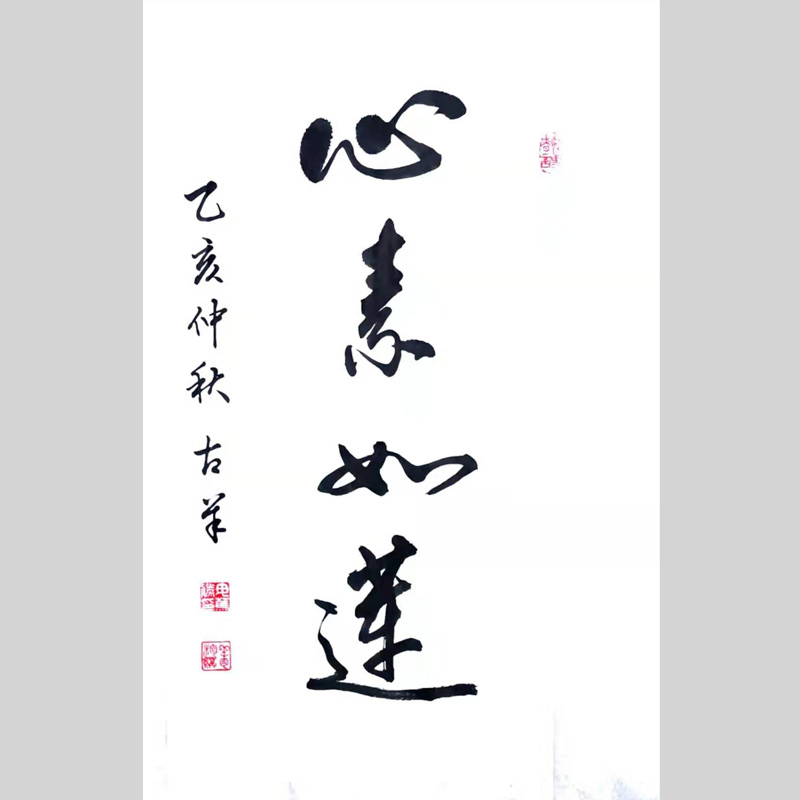 心素如莲
乙亥仲秋 古羊